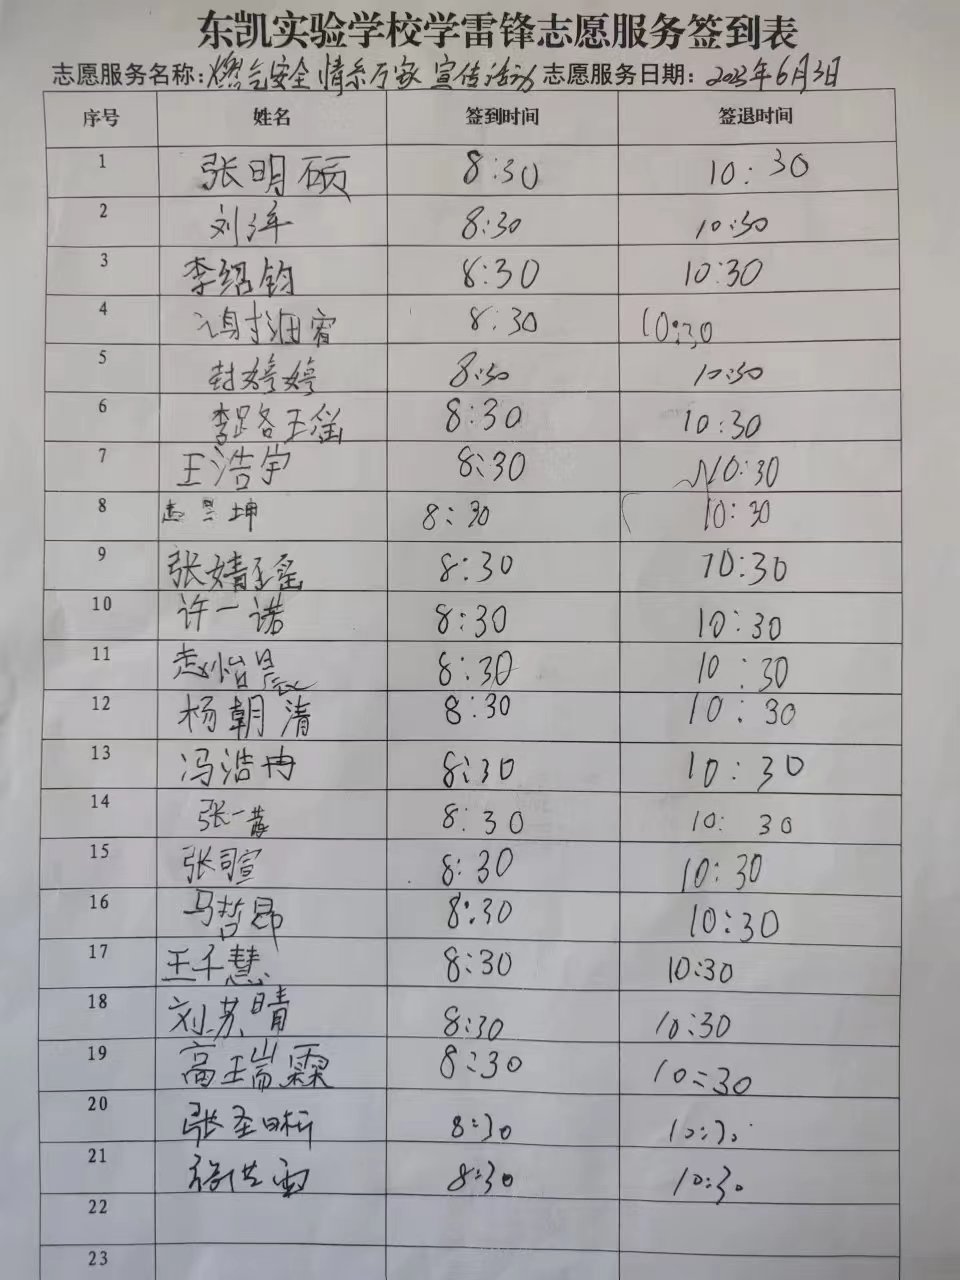 东凯实验学校学雷锋志愿服务签到表
志愿服务名称:燃气安全 情系万家 宣传活动 志愿服务日期: 2023年6月3日
序号 姓名 签到时间 签退时间
1 张明硕 8:30 10:30
2 刘洋 8:30 10:30
3 李绍钧 8:30 10:30
4 8:30 10:30
5 封婷婷 8:30 10:30
6 李路瑶 8:30 10:30
7 王浩宇 8:30 10:30
8 坤 8:30 10:30
9 张婧瑶 8:30 10:30
10 许一诺 8:30 10:30
11 赵怡 8:30 10:30
12 杨朝清 8:30 10:30
13 冯浩冉 8:30 10:30
14 张一 8:30 10:30
15 张司宣 8:30 10:30
16 马哲昂 8:30 10:30
17 王千慧 8:30 10:30
18 刘苏晴 8:30 10:30
19 高瑞霖 8:30 10:30
20 张圣 8:30 10:30
21 8:30 10:30
22
23